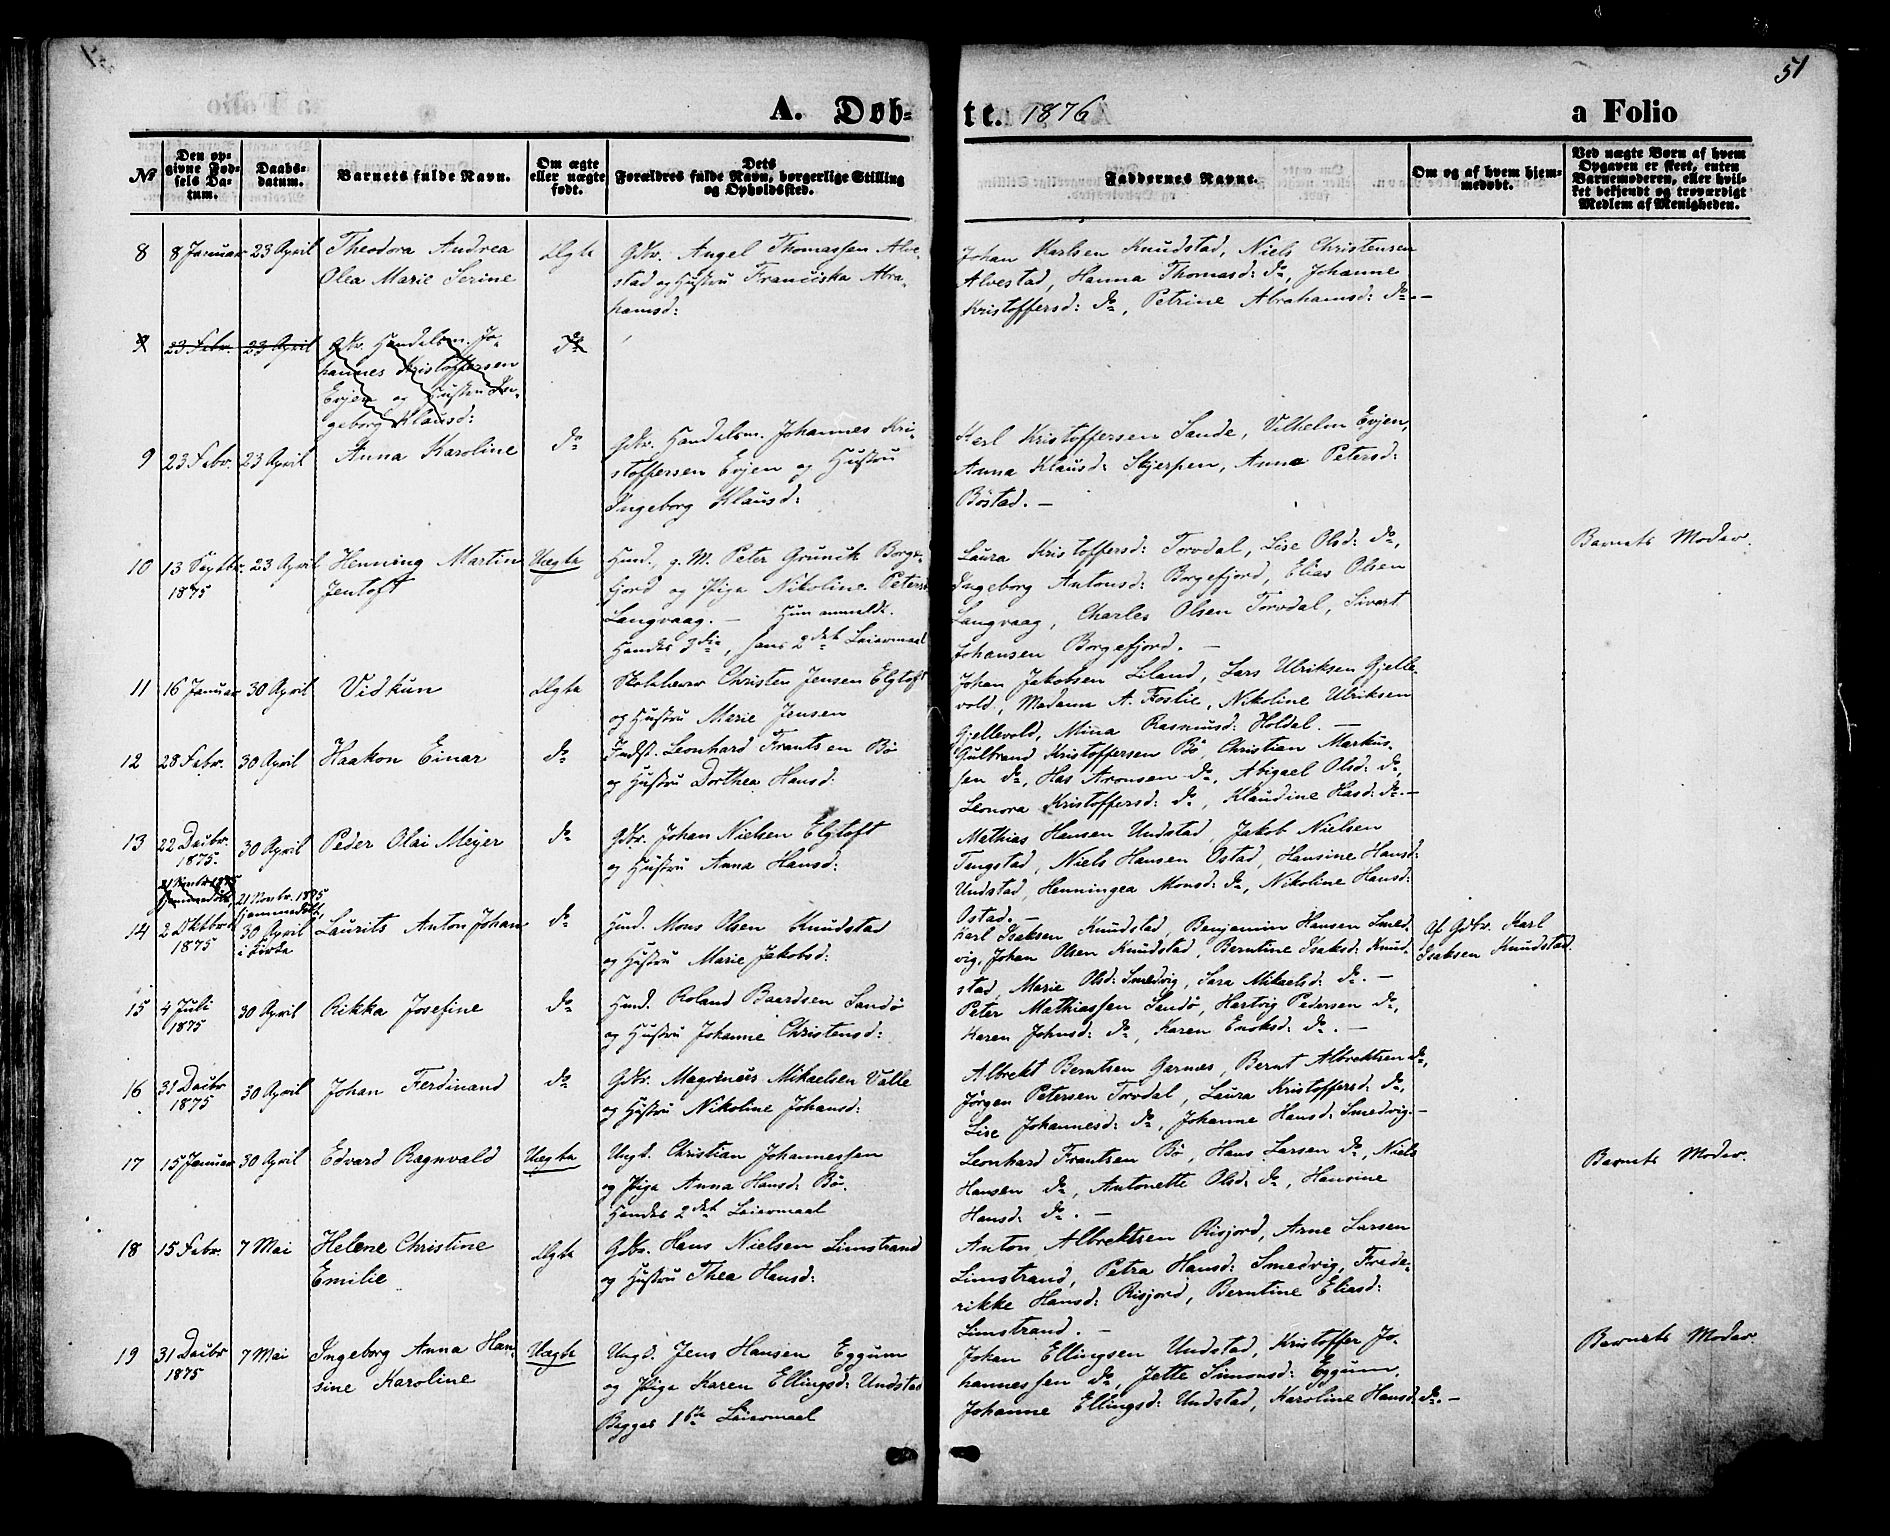 51
A. Døb-
te. 1876
a Folio
No
Den op-
givne Fød-
sels Da-
tum.
Daabs-
datum.
Barnets fulde Navn.
Om ægte
eller uægte
født.
Dets
Forældres fulde Navn, borgerlige Stilling
og Opholdssted.
Faddernes Navne.
Om og af hvem hjem-
medøbt.
Ved uægte Børn af hvem
Opgaven er skeet, enten
Barnemoderen, eller hvil-
ket bekjendt og troværdigt
Medlem af Menigheden.
8
8 Januar
23 April
Theodora Andrea
Olea Marie Serine
Ægte
Gdbr. Angel Thomassen Alve-
stad og Hustru Franciska Abra-
hamsd:
Johan Karlsen Knudstad, Niels Christensen
Alvestad, Hanna Thomasd: do, Johanne
Kristoffersd: do, Petrine Abrahamsd: do. —
9
23 Febr.
23 April
Gdbr. Handelsm. Jo-
hannes Kristoffersen
Evjen og Hustru In-
geborg Klausd:
do
9
23 Febr.
23 April
Anna Karoline
do
Gdbr. Handelsm. Johannes Kri-
stoffersen Evjen og Hustru
Ingeborg Klausd:
Karl Kristoffersen Sande, Vilhelm Evjen,
Anna Klausd: Skjerpen, Anna Petersd:
Böstad. —
10
13 Septbr.
1875
23 April
Henning Martin
Jentoft
Uægte
Hmd. g. M. Peter Grunik Borge-
fjord og Pige Nikoline Petersd:
Langvaag. — Hun anmeldt.
Hendes 3die, hans 2det Leiermaal
Laura Kristoffersd: Torvdal, Lise Olsd: do,
Ingeborg Antonsd: Borgefjord, Elias Olsen
Langvaag, Charles Olsen Torvdal, Sivert
Johansen Borgefjord. —
Barnets Moder.
11
16 Januar
30 April
Vidkun
Ægte
Skolelærer Christen Jensen Elgtoft
og Hustru Marie Jensen
Johan Jakobsen Liland, Lars Ulriksen Gjelle-
vold, Madam A. Foslie, Nikoline Ulriksen
Gjellevold, Mina Rasmusd: Holdal. —
12
28 Febr.
30 April
Haakon Einar
do
Indst. Leonhard Frantsen Bö
og Hustru Dorthea Hansd:
Gulbrand Kristoffersen Bö, Christian Markus-
sen do, Has Aronsen do, Abigael Olsd: do,
Leonora Kristoffersd: do, Klaudine Hasd: do. —
13
22 Decbr.
1875.
30 April
Peder Olai Meyer
do
Gdbr. Johan Nielsen Elgtoft
og Hustru Anna Hansd:
Mathias Hansen Undstad, Jakob Nielsen
Tangstad, Niels Hansen Ostad, Hansine Hansd:
Undstad, Henningea Monsd: do, Nikoline Hansd:
Ostad. —
14
21 Novbr 1875
Hjemmedöbt
2 Oktbr.
1875
21 Novbr. 1875
Hjemmedöbt,
30 April
i Kirke
Laurits Anton Johan
do
Hmd. Mons Olsen Knudstad
og Hustru Marie Jakobsd:
Karl Isaksen Knudstad, Benjamin Hansen Smed-
vig, Johan Olsen Knudstad, Berntine Isaksd: Knud-
stad, Marie Olsd: Smedvig, Sara Mikaelsd: do. —
Af Gdbr. Karl
Isaksen Knudstad.
15
4 Juli
1875
30 April
Rikka Josefine
do
Hmd. Roland Baardsen Sandö
og Hustru Johanne Christensd:
Peter Mathiassen Sandö, Hartvig Pedersen do,
Karen Johnsd: do, Karen Enoksd: do. —
16
31 Decbr
1875
30 April
Johan Ferdinand
do
Gdbr. Magrinus Mikaelsen Valle
og Hustru Nikoline Johansd:
Albrekt Berntsen Garnæs, Bernt Albrektsen do,
Jørgen Petersen Torvdal, Laura Kristoffersd: do,
Lise Johannesd: do, Johanne Hansd: Smedvig. —
17
15 Januar
30 April
Edvard Ragnvald
Uægte
Ungk. Christian Johannessen
og Pige Anna Hansd: Bö.
Hendes 2det Leiermaal
Leonhard Frantsen Bö, Hans Larsen do, Niels
Hansen do, Antonette Olsd: do, Hansine
Hansd: do. —
Barnets Moder.
18
15 Febr.
7 Mai
Helene Christine
Emilie
Ægte
Gdbr. Hans Nielsen Limstrand
og Hustru Thea Hansd:
Anton Albrektsen Risjord, Arne Larsen
Limstrand, Petra Hansd: Smedvig, Frede-
rikke Hansd: Risjord, Berntine Eliasd:
Limstrand. —
19
31 Decbr
1875
7 Mai
Ingeborg Anna Han-
sine Karoline
Uægte
Ungk. Jens Hansen Eggum
og Pige Karen Ellingsd: Undstad
Begges 1ste Leiermaal
Johan Ellingsen Undstad, Kristoffer Jo-
hannessen do, Jette Simonsd: Eggum,
Johanne Ellingsd: Undstad, Karoline Hansd: do. —
Barnets Moder.